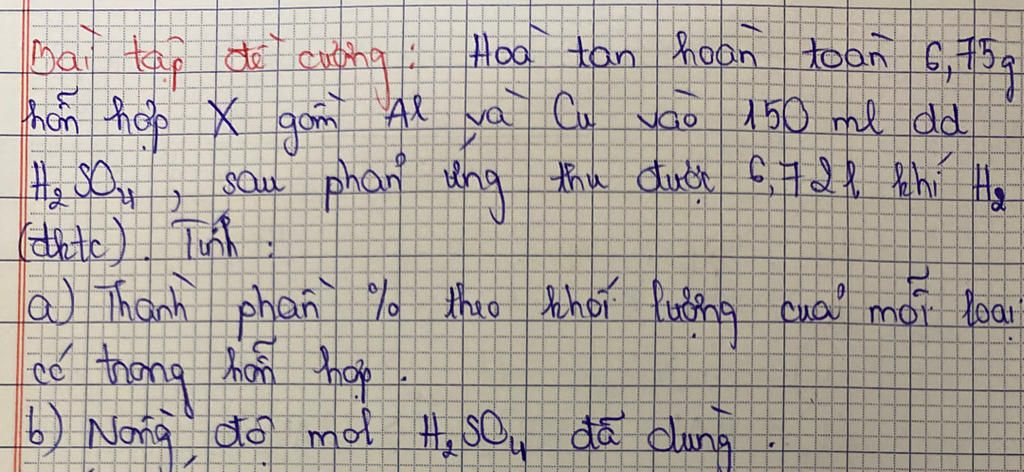 Bài tập đề cương: Hoà tan hoàn toàn 6,75g
hỗn hợp X gồm Al và Cu vào 150 ml dd
H₂SO₄, sau phản ứng thu được 6,72l khí H₂
(đktc). Tính:
a) Thành phần % theo khối lượng của mỗi loại
có trong hỗn hợp.
b) Nồng độ mol H₂SO₄ đã dùng.